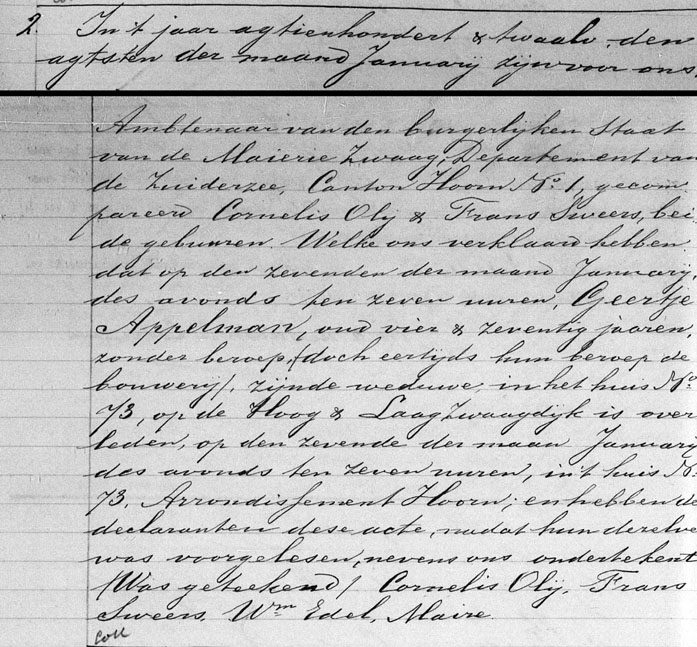 2. In 't jaar agtienhondert & twaalv, den
agtsten der maand January zijn voor ons
Ambtenaar van den burgerlijken Staat
van de Mairie Zwaag, Departement van
de Zuiderzee, Canton Hoorn No. 1, gecom
pareerd Cornelis Olij & Frans Sweers, bei
de gebuuren. Welke ons verklaard hebben
dat op den zevenden der maand January,
des avonds ten zeven uuren, Geertje
Appelman, oud vier & zeventig jaaren,
zonder beroep, (doch eertijds hun beroep de
bouwerij), zijnde weduwe, in het huis No.
73, op de Hoog & Laagzwaagdijk is over
leden, op den zevende der maan January
des avonds ten zeven uuren, in't huis No.
73. Arrondissement Hoorn; en hebben de
declaranten dese acte, nadat hun derzelve
was voorgelesen, nevens ons ondertekent
(Was geteekend) Cornelis Olij, Frans
Sweers, Wm Edel, Maire.
Coll